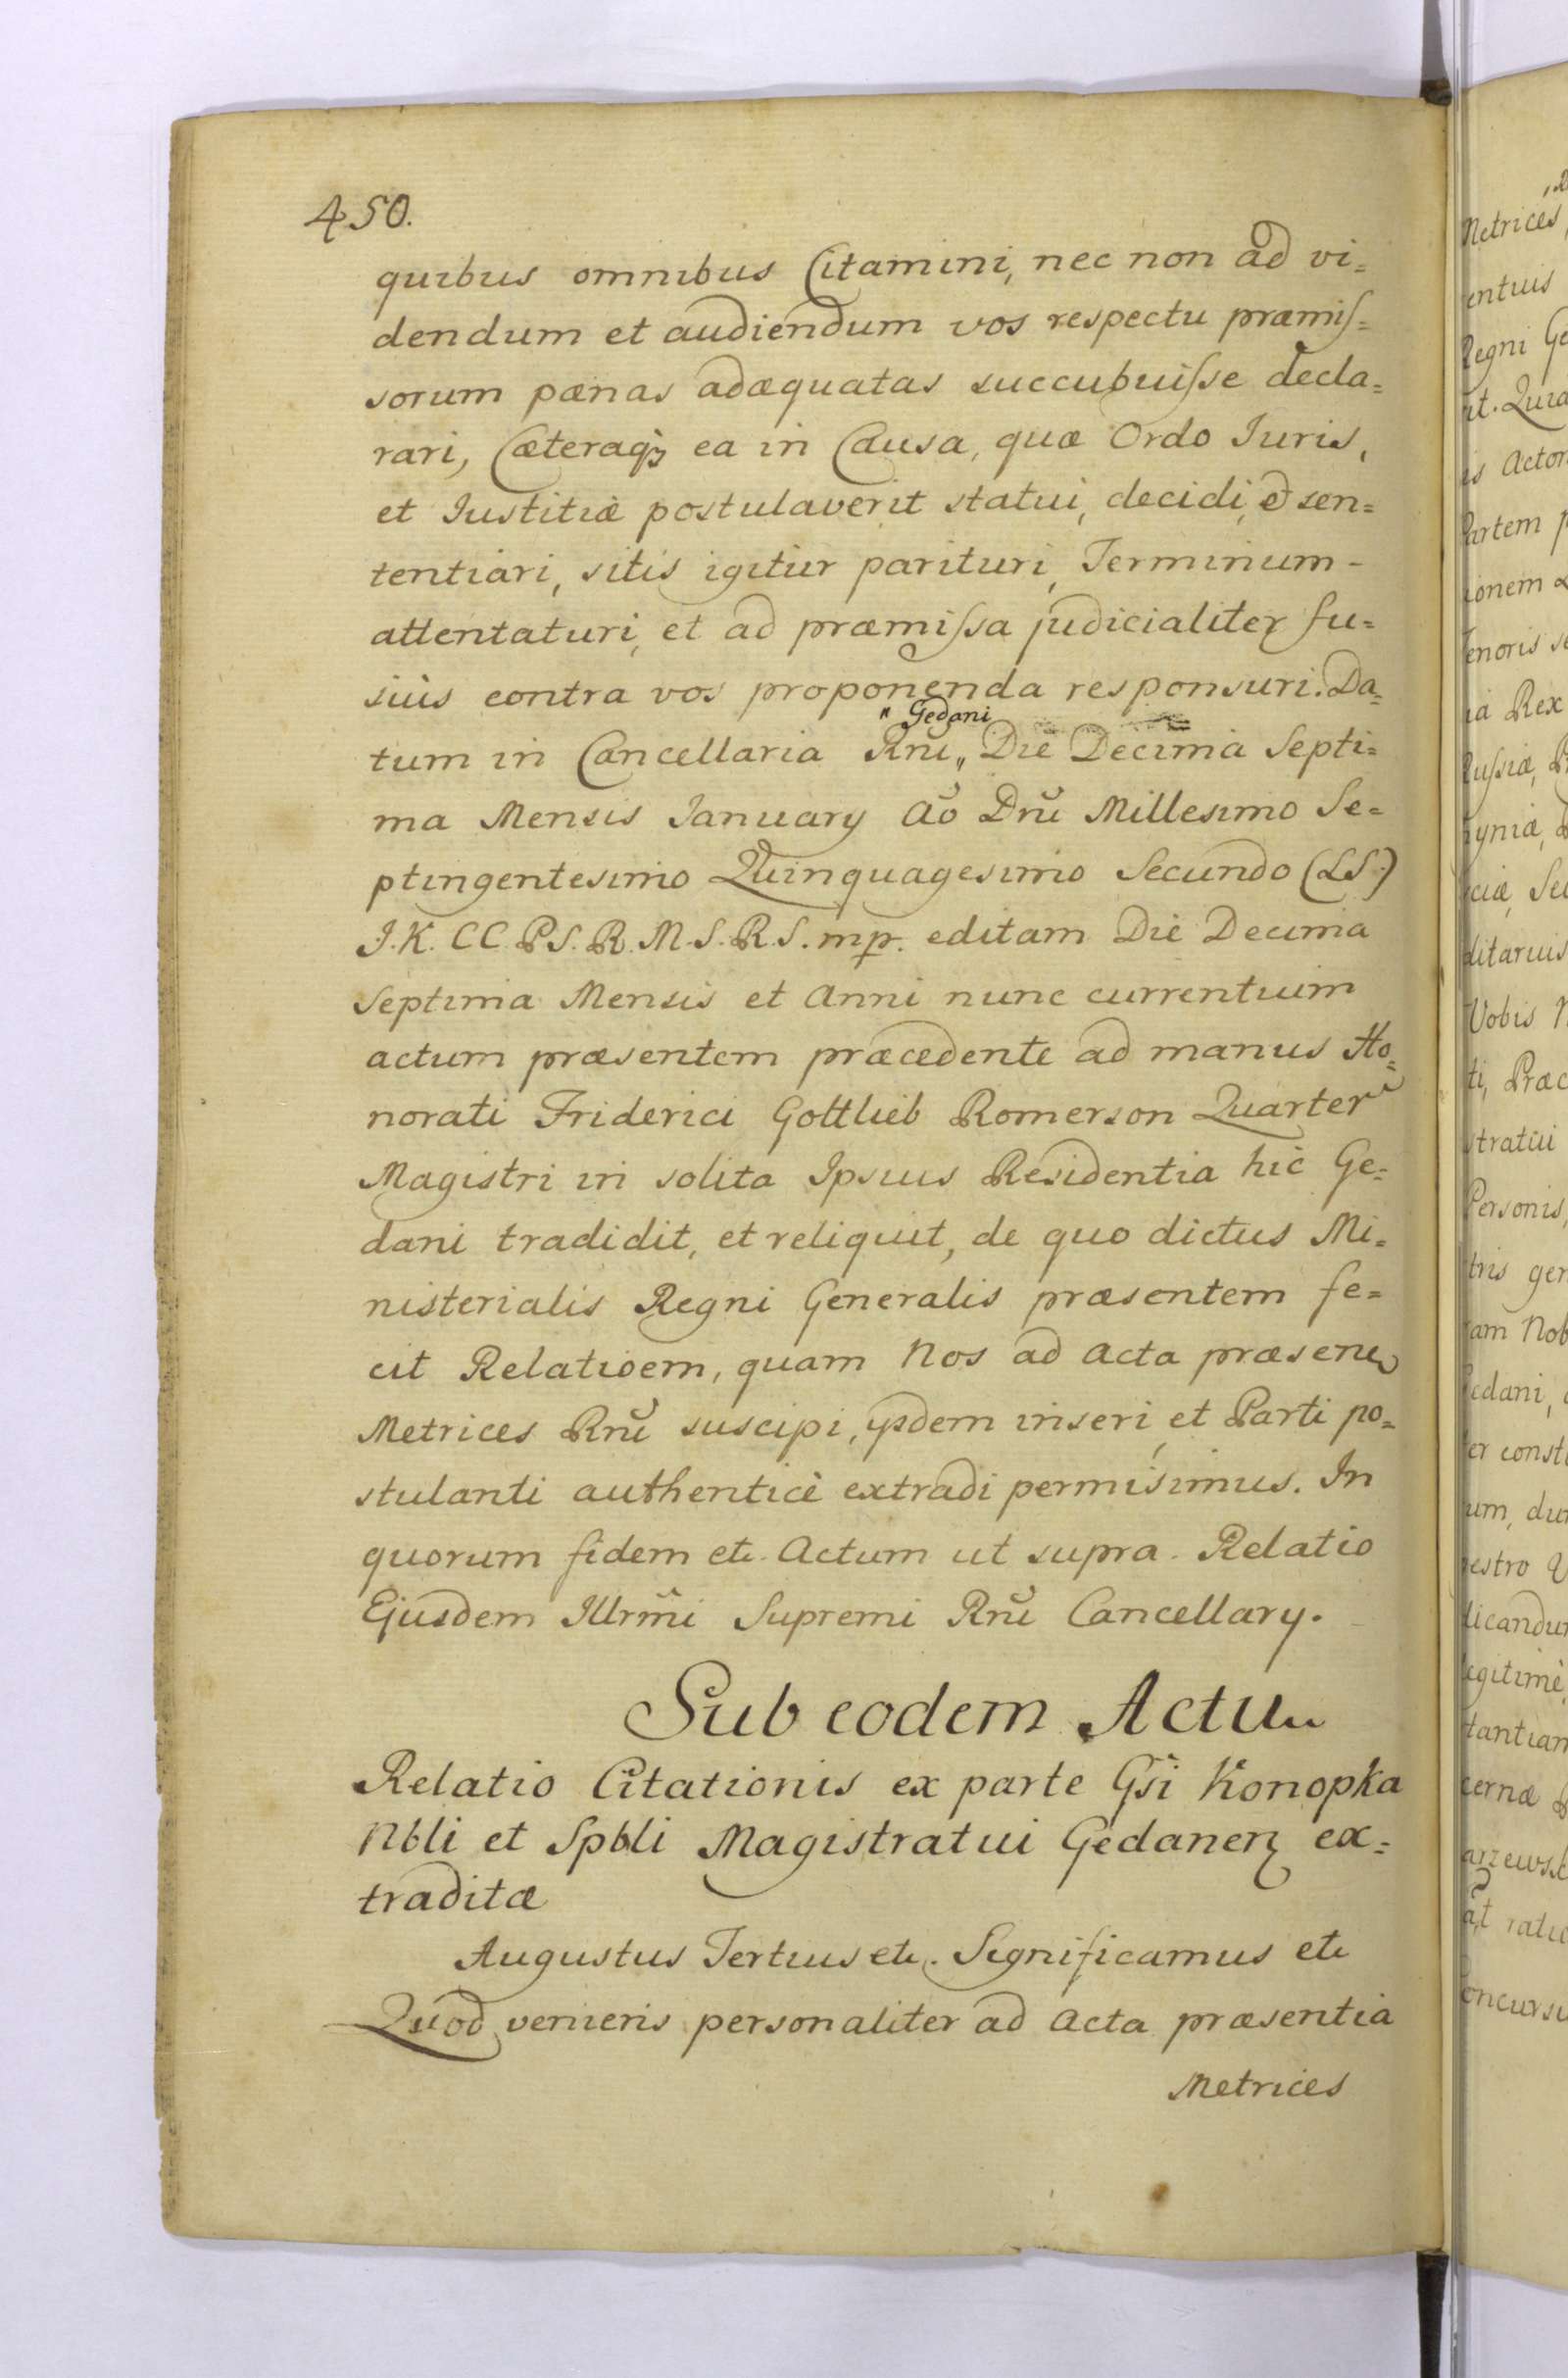 450.
quibus omnibus Citamini, nec non ad vi=
dendum et audiendum vos respectu præmiſ=
sorum pœnas adæquatas succubuiſse decla=
rari, Cæteraqꝫ ea in Causa, quæ Ordo Iuris,
et Iustitiæ postulaverit statui, decidi, et sen=
tentiari, sitis igitur parituri, Terminum -
attentaturi, et ad præmiſsa judicialiter fu=
siùs contra vos proponenda responsuri. Da=
tum in Cancellaria Rnĩ „ Gedani „ Die Decima Septi=
ma Mensis Ianuary Aõ Dnĩ Millesimo Se=
ptingentesimo Quinquagesimo Secundo (LS.)
J.K. CC. PS. R. M. S. R. S. mp. editam Die Decima
Septima Mensis et Anni nunc currentium
actum præsentem præcedente ad manus Ho=
norati Friderici Gottlieb Romerson Quarter
Magistri in solita Ipsius Residentia hic Ge=
dani tradidit, et reliquit, de quo dictus Mi=
nisterialis Regni Generalis præsentem fe=
cit Relatioem, quam Nos ad Acta præsen
Metrices Rnĩ suscipi, ysdem inseri, et Parti po=
stulanti authenticè extradi permisimus. In
quorum fidem etc. Actum ut supra. Relatio
Ejusdem Illrm̃i Supremi Rnĩ Cancellary.
Sub eodem Actu
Relatio Citationis ex parte Gsi Konopka
Nbli et Spbli Magistratui Gedanen ex=
traditæ
Augustus Tertius etc. Significamus etc
Quod veniens personaliter ad Acta præsentia
Metrices